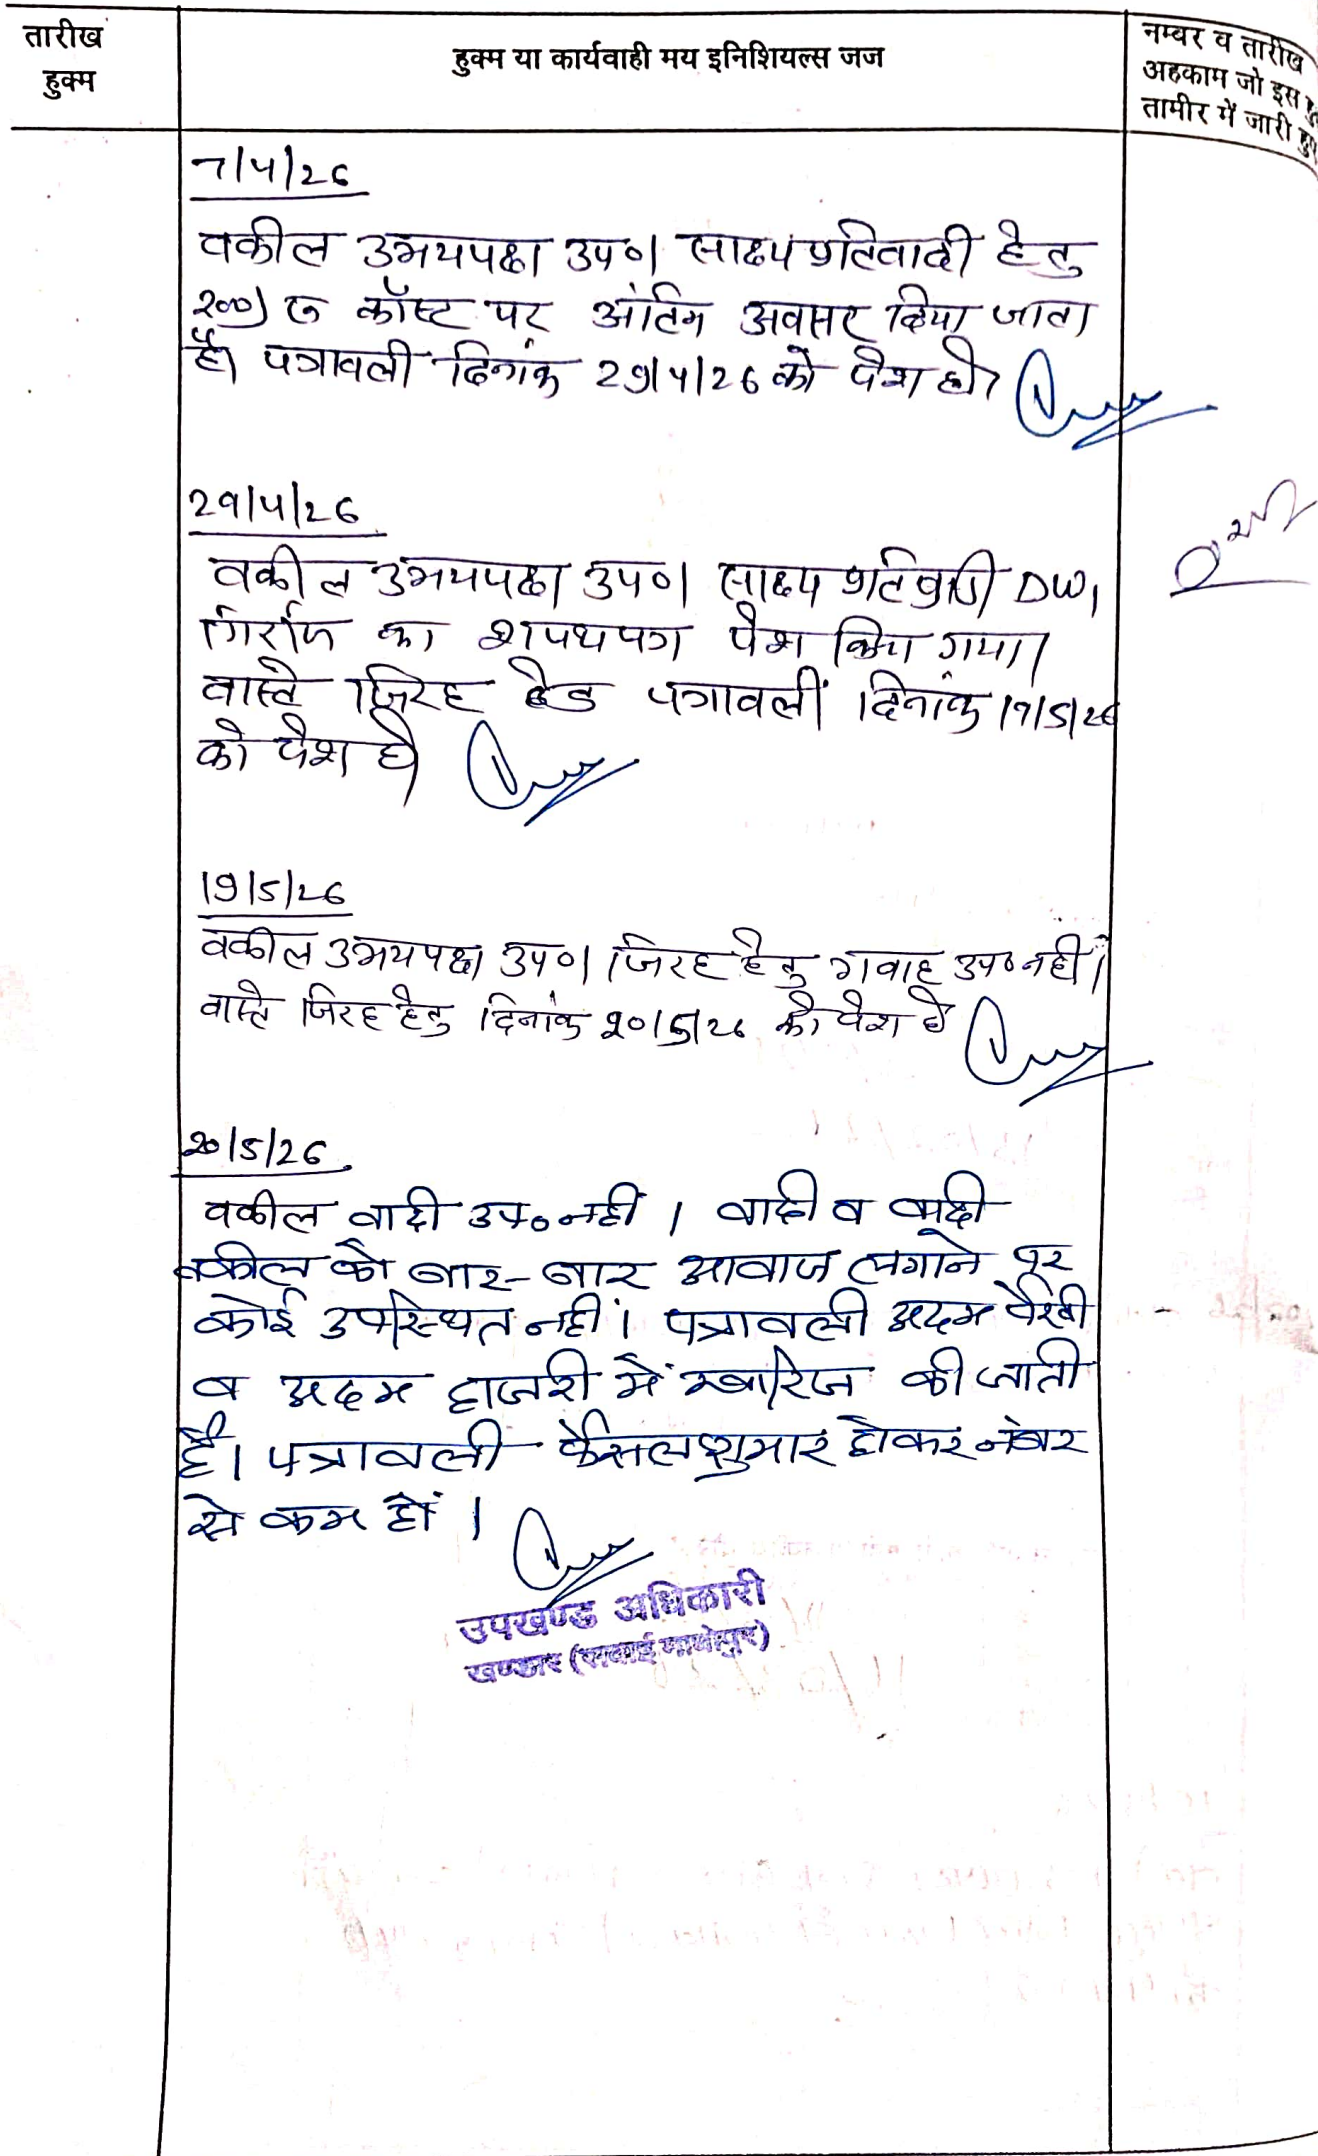 तारीख
हुक्म
हुक्म या कार्यवाही मय इनिशियल्स जज
नम्बर व तारीख
अहकाम जो इस
तामीर में जारी हुए
7/4/26
वकील उभयपक्ष उप०। साक्ष्य प्रतिवादी हेतु
200) रु कॉस्ट पर अंतिम अवसर दिया जाता
है। पत्रावली दिनांक 29/4/26 को पेश हो।
29/4/26
वकील उभयपक्ष उप०। साक्ष्य प्रतिवादी DW1
का शपथपत्र पेश किया गया।
वास्ते जिरह हेतु पत्रावली दिनांक 19/5/26
को पेश हो।
19/5/26
वकील उभयपक्ष उप०। जिरह हेतु गवाह उप० नहीं।
वास्ते जिरह हेतु दिनांक 20/5/26 को पेश हो
20/5/26
वकील वादी उप० नहीं। वादी व वादी
वकील को बार-बार आवाज लगाने पर
कोई उपस्थित नहीं। पत्रावली अदम पैरवी
व अदम हाजरी में खारिज की जाती
है। पत्रावली फैसल शुमार होकर नंबर
से कम हों।
उपखण्ड अधिकारी
खण्डार (सवाई माधोपुर)